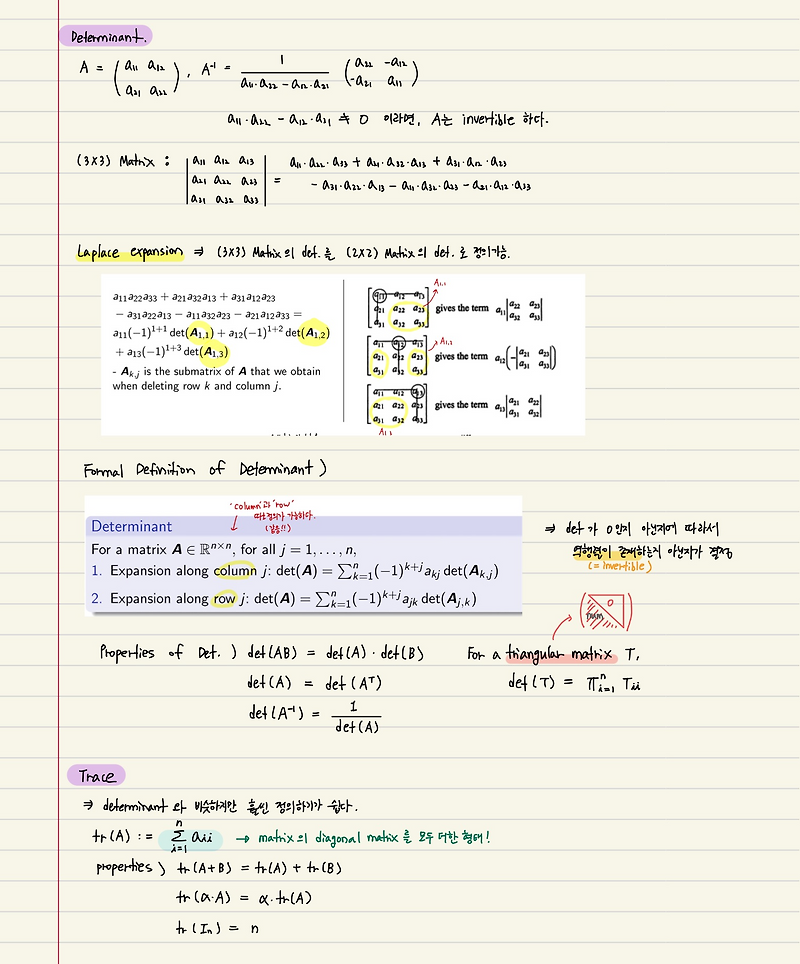 Determinant.
A = ( a₁₁ a₁₂ , A⁻¹ = 1 / (a₁₁·a₂₂ − a₁₂·a₂₁) ( a₂₂ −a₁₂
a₂₁ a₂₂ ) −a₂₁ a₁₁ )
a₁₁·a₂₂ − a₁₂·a₂₁ ≠ 0 이라면, A는 invertible 하다.
(3×3) Matrix : | a₁₁ a₁₂ a₁₃ | = a₁₁·a₂₂·a₃₃ + a₂₁·a₃₂·a₁₃ + a₃₁·a₁₂·a₂₃
| a₂₁ a₂₂ a₂₃ | − a₃₁·a₂₂·a₁₃ − a₁₁·a₃₂·a₂₃ − a₂₁·a₁₂·a₃₃
| a₃₁ a₃₂ a₃₃ |
Laplace expansion ⇒ (3×3) Matrix의 det.를 (2×2) Matrix의 det.로 정의가능.
a₁₁a₂₂a₃₃ + a₂₁a₃₂a₁₃ + a₃₁a₁₂a₂₃
− a₃₁a₂₂a₁₃ − a₁₁a₃₂a₂₃ − a₂₁a₁₂a₃₃ =
a₁₁(−1)¹⁺¹ det(A₁,₁) + a₁₂(−1)¹⁺² det(A₁,₂)
+ a₁₃(−1)¹⁺³ det(A₁,₃)
- Aₖ,ⱼ is the submatrix of A that we obtain
when deleting row k and column j.
A₁,₁
a₁₁ a₁₂ a₁₃
a₂₁ a₂₂ a₂₃ gives the term a₁₁ | a₂₂ a₂₃ |
a₃₁ a₃₂ a₃₃ | a₃₂ a₃₃ |
a₁₁ a₁₂ a₁₃ A₁,₂
a₂₁ a₂₂ a₂₃ gives the term a₁₂ (−| a₂₁ a₂₃ |)
a₃₁ a₃₂ a₃₃ | a₃₁ a₃₃ |
a₁₁ a₁₂ a₁₃
a₂₁ a₂₂ a₂₃ gives the term a₁₃ | a₂₁ a₂₂ |
a₃₁ a₃₂ a₃₃ | a₃₁ a₃₂ |
Formal Definition of Determinant )
'column'과 'row'
따로정의가 가능하다.
(같음!!)
Determinant
For a matrix A ∈ ℝⁿˣⁿ, for all j = 1, . . . , n,
1. Expansion along column j: det(A) = ∑ⁿₖ₌₁(−1)ᵏ⁺ʲaₖⱼ det(Aₖ,ⱼ)
2. Expansion along row j: det(A) = ∑ⁿₖ₌₁(−1)ᵏ⁺ʲaⱼₖ det(Aⱼ,ₖ)
⇒ det가 0인지 아닌지에 따라서
역행렬이 존재하는지 아닌지가 결정
(= invertible)
Properties of Det. ) det(AB) = det(A)·det(B)
det(A) = det(Aᵀ)
det(A⁻¹) = 1 / det(A)
0
For a triangular matrix T,
det(T) = Πⁿᵢ₌₁ Tᵢᵢ
Trace
⇒ determinant와 비슷하지만 훨씬 정의하기가 쉽다.
tr(A) := ∑ⁿᵢ₌₁ aᵢᵢ → matrix의 diagonal matrix를 모두 더한 형태!
properties ) tr(A+B) = tr(A) + tr(B)
tr(α·A) = α·tr(A)
tr(Iₙ) = n